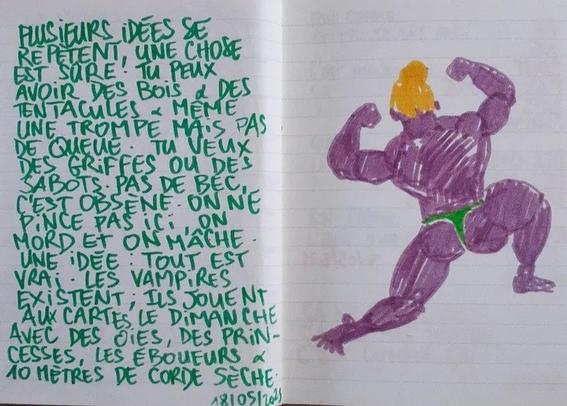 PLUSIEURS IDÉES SE
RÉPÈTENT, UNE CHOSE
EST SÛRE : TU PEUX
AVOIR DES BOIS & DES
TENTACULES & MÊME
UNE TROMPE MAIS PAS
DE QUEUE. TU VEUX
DES GRIFFES OU DES
SABOTS. PAS DE BEC,
C'EST OBSENE. ON NE
PINCE PAS ICI, ON
MORD ET ON MÂCHE.
UNE IDÉE : TOUT EST
VRAI. LES VAMPIRES
EXISTENT, ILS JOUENT
AUX CARTES LE DIMANCHE
AVEC DES OIES, DES PRIN-
CESSES, LES ÉBOUEURS &
10 MÈTRES DE CORDE SÈCHE.